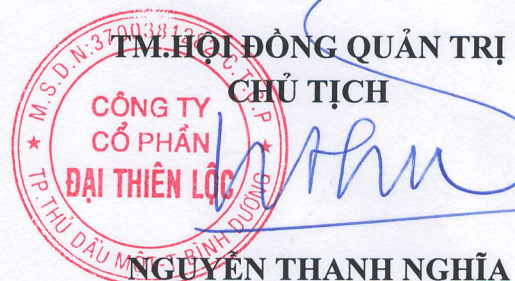 TM.HỘI ĐỒNG QUẢN TRỊ
CHỦ TỊCH
M.S.D.N:3700381
CÔNG TY
CỔ PHẦN
ĐẠI THIÊN LỘC
TP.THỦ DẦU MỘT-T.BÌNH DƯƠNG
NGUYỄN THANH NGHĨA